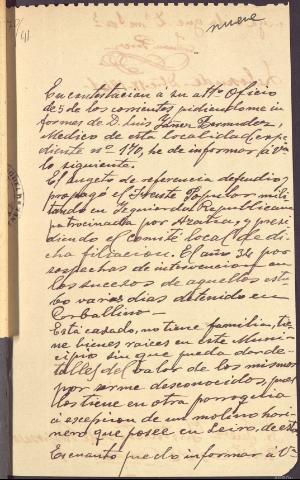 nueve
En contestacion á su attº Oficio
de 5 de los corrientes pidiendome in
formes de D. Luis Fañer Bermudez,
Medico de esta localidad espe
diente nº 170, he de informar á V.
lo siguiente.
El sugeto de referencia defendio y
propagó el Frente Popular, mili
tando en Izquierda Republicana
patrocinada por Azaña, y presi
diendo el Comité local de di
cha filiacion. El año 34 por
sospechas de intervencion en
los sucesos de aquellos estu
bo varios dias detenido en
Carballino —
Está casado, no tiene familia, tie
ne bienes raices en este Muni
cipio sin que pueda dar de
talles del valor de los mismos
por serme desconocidos, pues
los tiene en otra parroquia
á escepcion de un molino hari
nero que posee en Leiro, de esta
Es cuanto puedo informar á V.